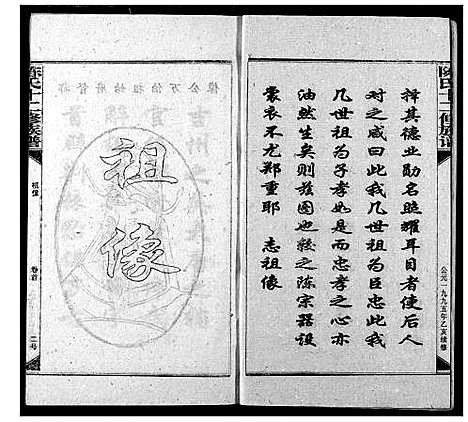 陈氏十二修族谱
择其德业勋名照耀耳目者使后人
对之咸曰此我几世祖为臣忠此我
几世祖为子孝如是而忠孝之心亦
油然生矣则兹图也较之陈宗器设
裳衣不尤郑重耶　志祖像
公元一九九五年乙亥续修
祖像
陈氏十二修族谱
祖像
卷首
二号